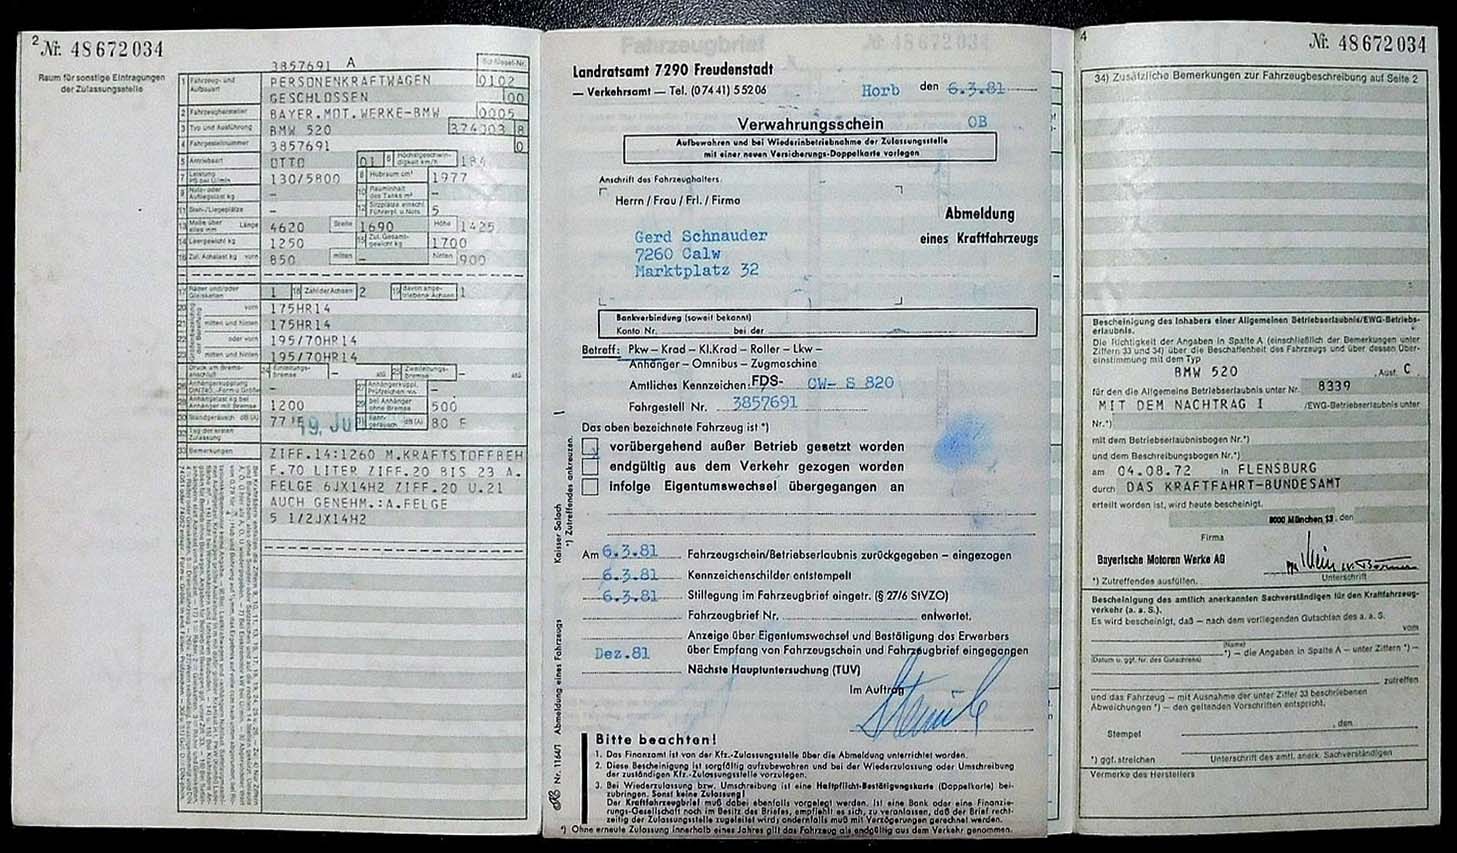 2 Nr. 48672034
Raum für sonstige Eintragungen
der Zulassungsstelle
3857691 A
1 Fahrzeug- und Aufbauart PERSONENKRAFTWAGEN 0102
GESCHLOSSEN 00
2 Fahrzeughersteller BAYER.MOT.WERKE-BMW 0005
3 Typ und Ausführung BMW 520 374003 8
4 Fahrgestellnummer 3857691 0
5 Antriebsart OTTO 01 6 Höchstgeschwindigkeit km/h 184
7 Leistung 130/5800 8 Hubraum cm³ 1977
9 Nutz- oder Aufliegelast kg – 10 Rauminhalt des Tanks m³ –
11 Steh-/Liegeplätze – 12 Sitzplätze einschl. Führerpl. u. Nots. 5
13 Maße über alles mm Länge 4620 Breite 1690 Höhe 1425
14 Leergewicht kg 1250 15 Zul. Gesamtgewicht kg 1700
16 Zul. Achslast kg vorn 850 mitten – hinten 900
17 Räder und/oder Gleisketten 1 18 Zahl der Achsen 2 19 davon angetriebene Achsen 1
20 vorn 175HR14
21 mitten und hinten 175HR14
22 oder vorn 195/70HR14
23 mitten und hinten 195/70HR14
1200 bei Anhänger ohne Bremse 500
Standgeräusch dB (A) 77 80 F
19. Ju
32 Tag der ersten Zulassung
33 Bemerkungen ZIFF.14:1260 M.KRAFTSTOFFBEH
F.70 LITER ZIFF.20 BIS 23 A.
FELGE 6JX14H2 ZIFF.20 U.21
AUCH GENEHM.:A.FELGE
5 1/2JX14H2
Fahrzeugbrief
Landratsamt 7290 Freudenstadt
– Verkehrsamt – Tel. (07441) 55206
Horb den 6.3.81
Verwahrungsschein OB
Aufbewahren und bei Wiederinbetriebnahme der Zulassungsstelle
mit einer neuen Versicherungs-Doppelkarte vorlegen
Anschrift des Fahrzeughalters.
Herrn / Frau / Frl. / Firma
Abmeldung
eines Kraftfahrzeugs
Gerd Schnauder
7260 Calw
Marktplatz 32
Bankverbindung (soweit bekannt)
Konto Nr. bei der
Betreff: Pkw – Krad – Kl.Krad – Roller – Lkw –
Anhänger – Omnibus – Zugmaschine
Amtliches Kennzeichen: FDS- CW- S 820
Fahrgestell Nr. 3857691
Das oben bezeichnete Fahrzeug ist *)
vorübergehend außer Betrieb gesetzt worden
endgültig aus dem Verkehr gezogen worden
infolge Eigentumswechsel übergegangen an
*) Zutreffendes ankreuzen.
Am 6.3.81 Fahrzeugschein/Betriebserlaubnis zurückgegeben – eingezogen
6.3.81 Kennzeichenschilder entstempelt
6.3.81 Stillegung im Fahrzeugbrief eingetr. (§ 27/6 StVZO)
Fahrzeugbrief Nr. entwertet.
Anzeige über Eigentumswechsel und Bestätigung des Erwerbers
über Empfang von Fahrzeugschein und Fahrzeugbrief eingegangen
Dez.81
Nächste Hauptuntersuchung (TÜV)
Im Auftrag
Nr. 1164/1 Abmeldung eines Fahrzeugs
Bitte beachten!
1. Das Finanzamt ist von der Kfz.-Zulassungsstelle über die Abmeldung unterrichtet worden.
2. Diese Bescheinigung ist sorgfältig aufzubewahren und bei der Wiederzulassung oder Umschreibung
der zuständigen Kfz.-Zulassungsstelle vorzulegen.
3. Bei Wiederzulassung bzw. Umschreibung ist eine Haftpflicht-Bestätigungskarte (Doppelkarte) bei-
zubringen. Sonst keine Zulassung!
Der Kraftfahrzeugbrief muß dabei ebenfalls vorgelegt werden. Ist eine Bank oder eine Finanzie-
rungs-Gesellschaft noch im Besitz des Briefes, empfiehlt es sich, zu veranlassen, daß der Brief recht-
zeitig der Zulassungsstelle zugeleitet wird; andernfalls muß mit Verzögerungen gerechnet werden.
*) Ohne erneute Zulassung innerhalb eines Jahres gilt das Fahrzeug als endgültig aus dem Verkehr genommen.
4 Nr. 48672034
34) Zusätzliche Bemerkungen zur Fahrzeugbeschreibung auf Seite 2
Bescheinigung des Inhabers einer Allgemeinen Betriebserlaubnis/EWG-Betriebs-
erlaubnis.
Die Richtigkeit der Angaben in Spalte A (einschließlich der Bemerkungen unter
Ziffern 33 und 34) über die Beschaffenheit des Fahrzeugs und über dessen Über-
einstimmung mit dem Typ
BMW 520 , Ausf. C
für den die Allgemeine Betriebserlaubnis unter Nr. 8339
MIT DEM NACHTRAG I /EWG-Betriebserlaubnis unter
Nr.*)
mit dem Betriebserlaubnisbogen Nr.*)
und dem Beschreibungsbogen Nr.*)
am 04.08.72 in FLENSBURG
durch DAS KRAFTFAHRT-BUNDESAMT
erteilt worden ist, wird heute bescheinigt.
8000 München 13, den
Firma
Bayerische Motoren Werke AG
*) Zutreffendes ausfüllen. Unterschrift
Bescheinigung des amtlich anerkannten Sachverständigen für den Kraftfahrzeug-
verkehr (a. a. S.).
Es wird bescheinigt, daß – nach dem vorliegenden Gutachten des a. a. S.
vom
(Name)
*) – die Angaben in Spalte A – unter Ziffern *) –
(Datum u. ggf. Nr. des Gutachtens)
zutreffen
und das Fahrzeug – mit Ausnahme der unter Ziffer 33 beschriebenen
Abweichungen *) – den geltenden Vorschriften entspricht.
, den
Stempel
*) ggf. streichen Unterschrift des amtl. anerk. Sachverständigen
Vermerke des Herstellers